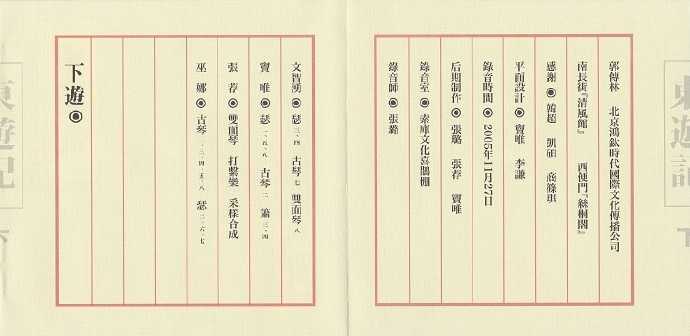 東遊記 下
郭傳林 北京鴻鈦時代國際文化傳播公司
南長街『清風館』 西便門『絲桐閣』
感謝◉韓超 凱 商篠琪
平面設計◉竇唯 李謙
錄音時間◉2005年11月27日
后期制作◉張璐 張荐 竇唯
錄音室◉索庫文化喜鵲棚
錄音師◉張璐
文智湧◉瑟 三·四 古琴 七 雙面琴 八
竇唯◉瑟 一·五·八 古琴 簫 三·四
張荐◉雙面琴 打擊樂 采樣合成
巫娜◉古琴 一·三·四·五·八 瑟 二·六·七
下遊◉
東遊記 下